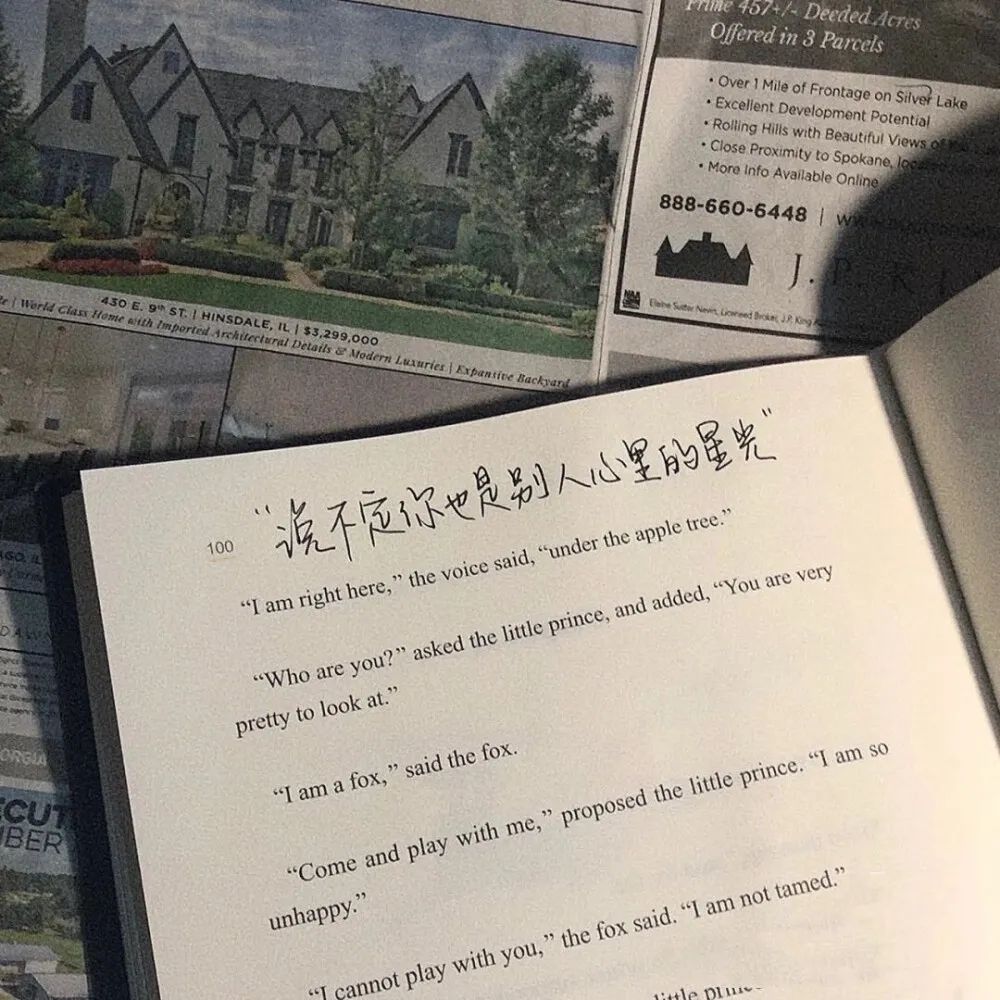 Prime 457+/- Deeded Acres
Offered in 3 Parcels
• Over 1 Mile of Frontage on Silver Lake
• Excellent Development Potential
• Rolling Hills with Beautiful Views of
• Close Proximity to Spokane,
• More Info Available Online
888-660-6448 |
J. P. KI
Elaine Sutter Nevin, Licensed Broker, J.P. King
430 E. 9th ST. | HINSDALE, IL | $3,299,000
| World Class Home with Imported Architectural Details & Modern Luxuries | Expansive Backyard
“说不定你也是别人心里的星光”
100
“I am right here,” the voice said, “under the apple tree.”
“Who are you?” asked the little prince, and added, “You are very
pretty to look at.”
“I am a fox,” said the fox.
“Come and play with me,” proposed the little prince. “I am so
unhappy.”
“I cannot play with you,” the fox said. “I am not tamed.”
little prince